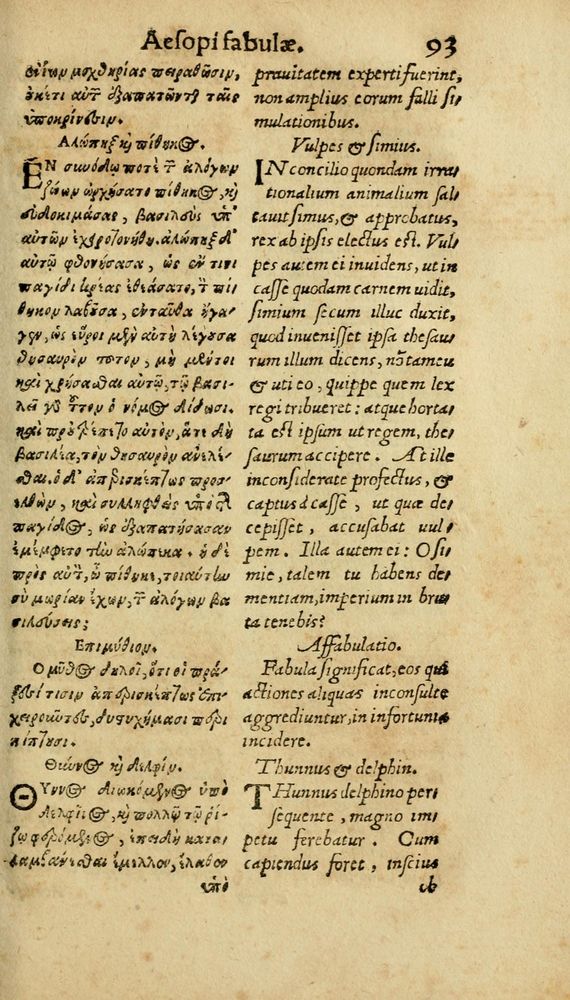 Aesopi fabulæ. 93
μοχθηρίας πειραθῶσιν,
οὐκέτι αὐτῶν ἐξαπατῶνται ταῖς
ὑποκρίσεσιν.
Αλώπηξ καὶ πίθηκος.
ΕΝ συνόδῳ ποτὲ τῶν ἀλόγων
ζώων ὠρχήσατο πίθηκος, καὶ
εὐδοκιμάσας, βασιλεὺς ὑπ'
αὐτῶν ἐχειροτονήθη. ἀλώπηξ δ'
αὐτῷ φθονήσασα, ὡς ἔν τινι
παγίδι κρέας ἐθεάσατο, τὸν πί-
θηκον λαβοῦσα, ἐνταῦθα ἤγα-
γεν, ὡς εὕροι μὲν αὐτὴ λέγουσα
θησαυρὸν τοῦτον, μὴ μέντοι
καὶ χρήσασθαι αὐτῷ, τῷ βασι-
λεῖ γὰρ τοῦτον ὁ νόμος δίδωσι.
καὶ προὐτρέπετο αὐτὸν, ἅτε δὴ
βασιλέα, τὸν θησαυρὸν ἀνελέ-
σθαι. ὁ δ' ἀπερισκέπτως προσ-
ελθὼν, καὶ συλληφθεὶς ὑπὸ τῆς
παγίδος, ὡς ἐξαπατήσασαν
ἐμέμφετο τὴν ἀλώπεκα. ἡ δὲ
πρὸς αὐτὸν, ὦ πίθηκε, τοιαύτην
σὺ μωρίαν ἔχων, τῶν ἀλόγων βα
σιλεύσεις;
Επιμύθιον.
Ο μῦθος δηλοῖ, ὅτι οἱ πρά-
ξεσί τισιν ἀπερισκέπτως ἐπι-
χειροῦντες, δυστυχήμασι περι
πίπτουσι.
Θύννος καὶ δελφίν.
ΘΥννος διωκόμενος ὑπὸ
δελφῖνος, καὶ πολλῷ τῷ ῥοί-
ζῳ φερόμενος, ἐπειδὴ κατα-
λαμβάνεσθαι ἔμελλεν, ἔλαθεν
ὑπὸ
prauitatem experti fuerint,
non amplius eorum falli si
mulationibus.
Vulpes & simius.
IN concilio quondam irra
tionalium animalium sal
tauit simus, & approbatus,
rex ab ipsis electus est. Vul
pes autem ei inuidens, ut in
casse quodam carnem uidit,
simium secum illuc duxit,
quod inuenisset ipsa thesau
rum illum dicens, nõ tameu
& uti eo, quippe quem lex
regi tribueret: atque horta
ta est ipsum ut regem, the
saurum accipere. At ille
inconsiderate profectus, &
captus à casse, ut quæ de
cepisset, accusabat uul
pem. Illa autem ei: O si
mie, talem tu habens de
mentiam, imperium in bru
ta tenebis?
Affabulatio.
Fabula significat, eos qui
actiones aliquas inconsulte
aggrediuntur, in infortunia
incidere.
Thunnus & delphin.
THunnus delphino per
sequente, magno im
petu ferebatur. Cum
capiendus foret, inscius
ub